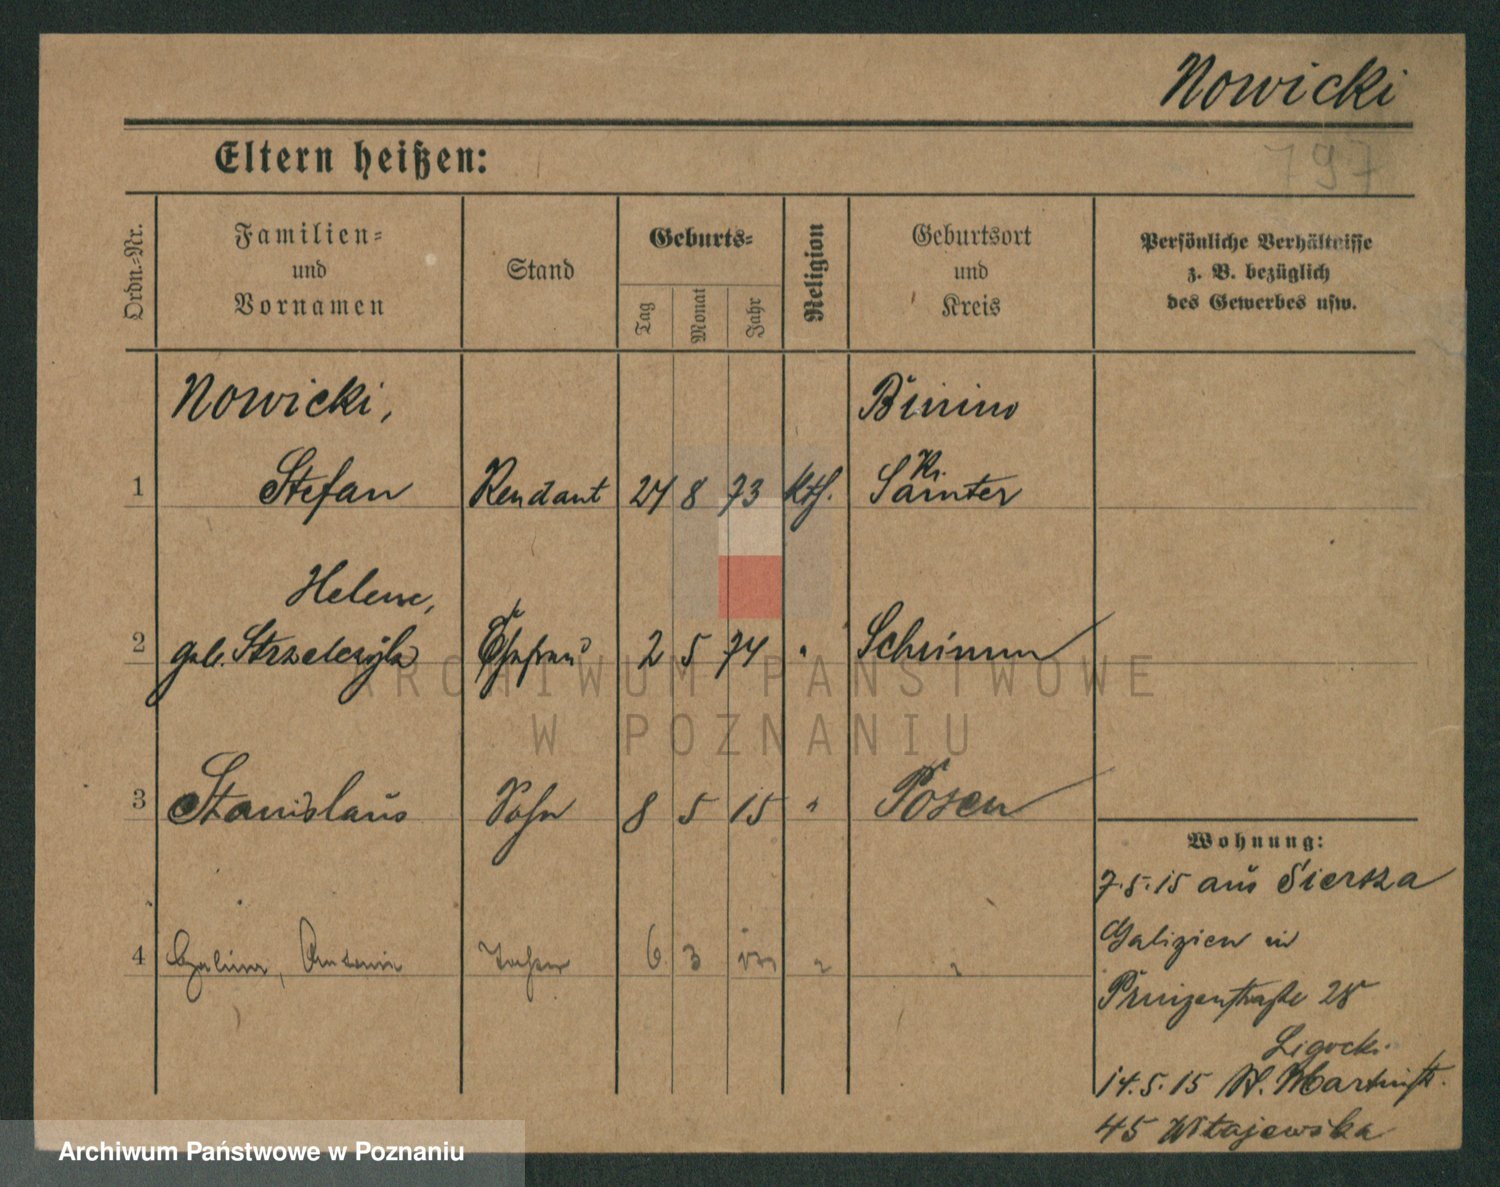 Nowicki
797
Eltern heißen:
Ordn.-Nr.
Familien-
und
Vornamen
Stand
Geburts-
Tag
Monat
Jahr
Religion
Geburtsort
und
Kreis
Persönliche Verhältnisse
z. B. bezüglich
des Gewerbes usw.
Nowicki, Binino
Kr.
1 Stefan Rendant 24 8 73 kth. Samter
Helene,
2 geb. Strzelczyk Ehefrau 2 5 74 " Schrimm
3 Stanislaus Sohn 8 5 15 " Posen
Wohnung:
7.5.15 aus Siersza
Galizien in
4 Tochter 6 3 " "
Prinzenstraße 28
Ligocki
14.5.15 St. Martinstr.
45 Witajewska
ARCHIWUM PAŃSTWOWE
W POZNANIU
Archiwum Państwowe w Poznaniu